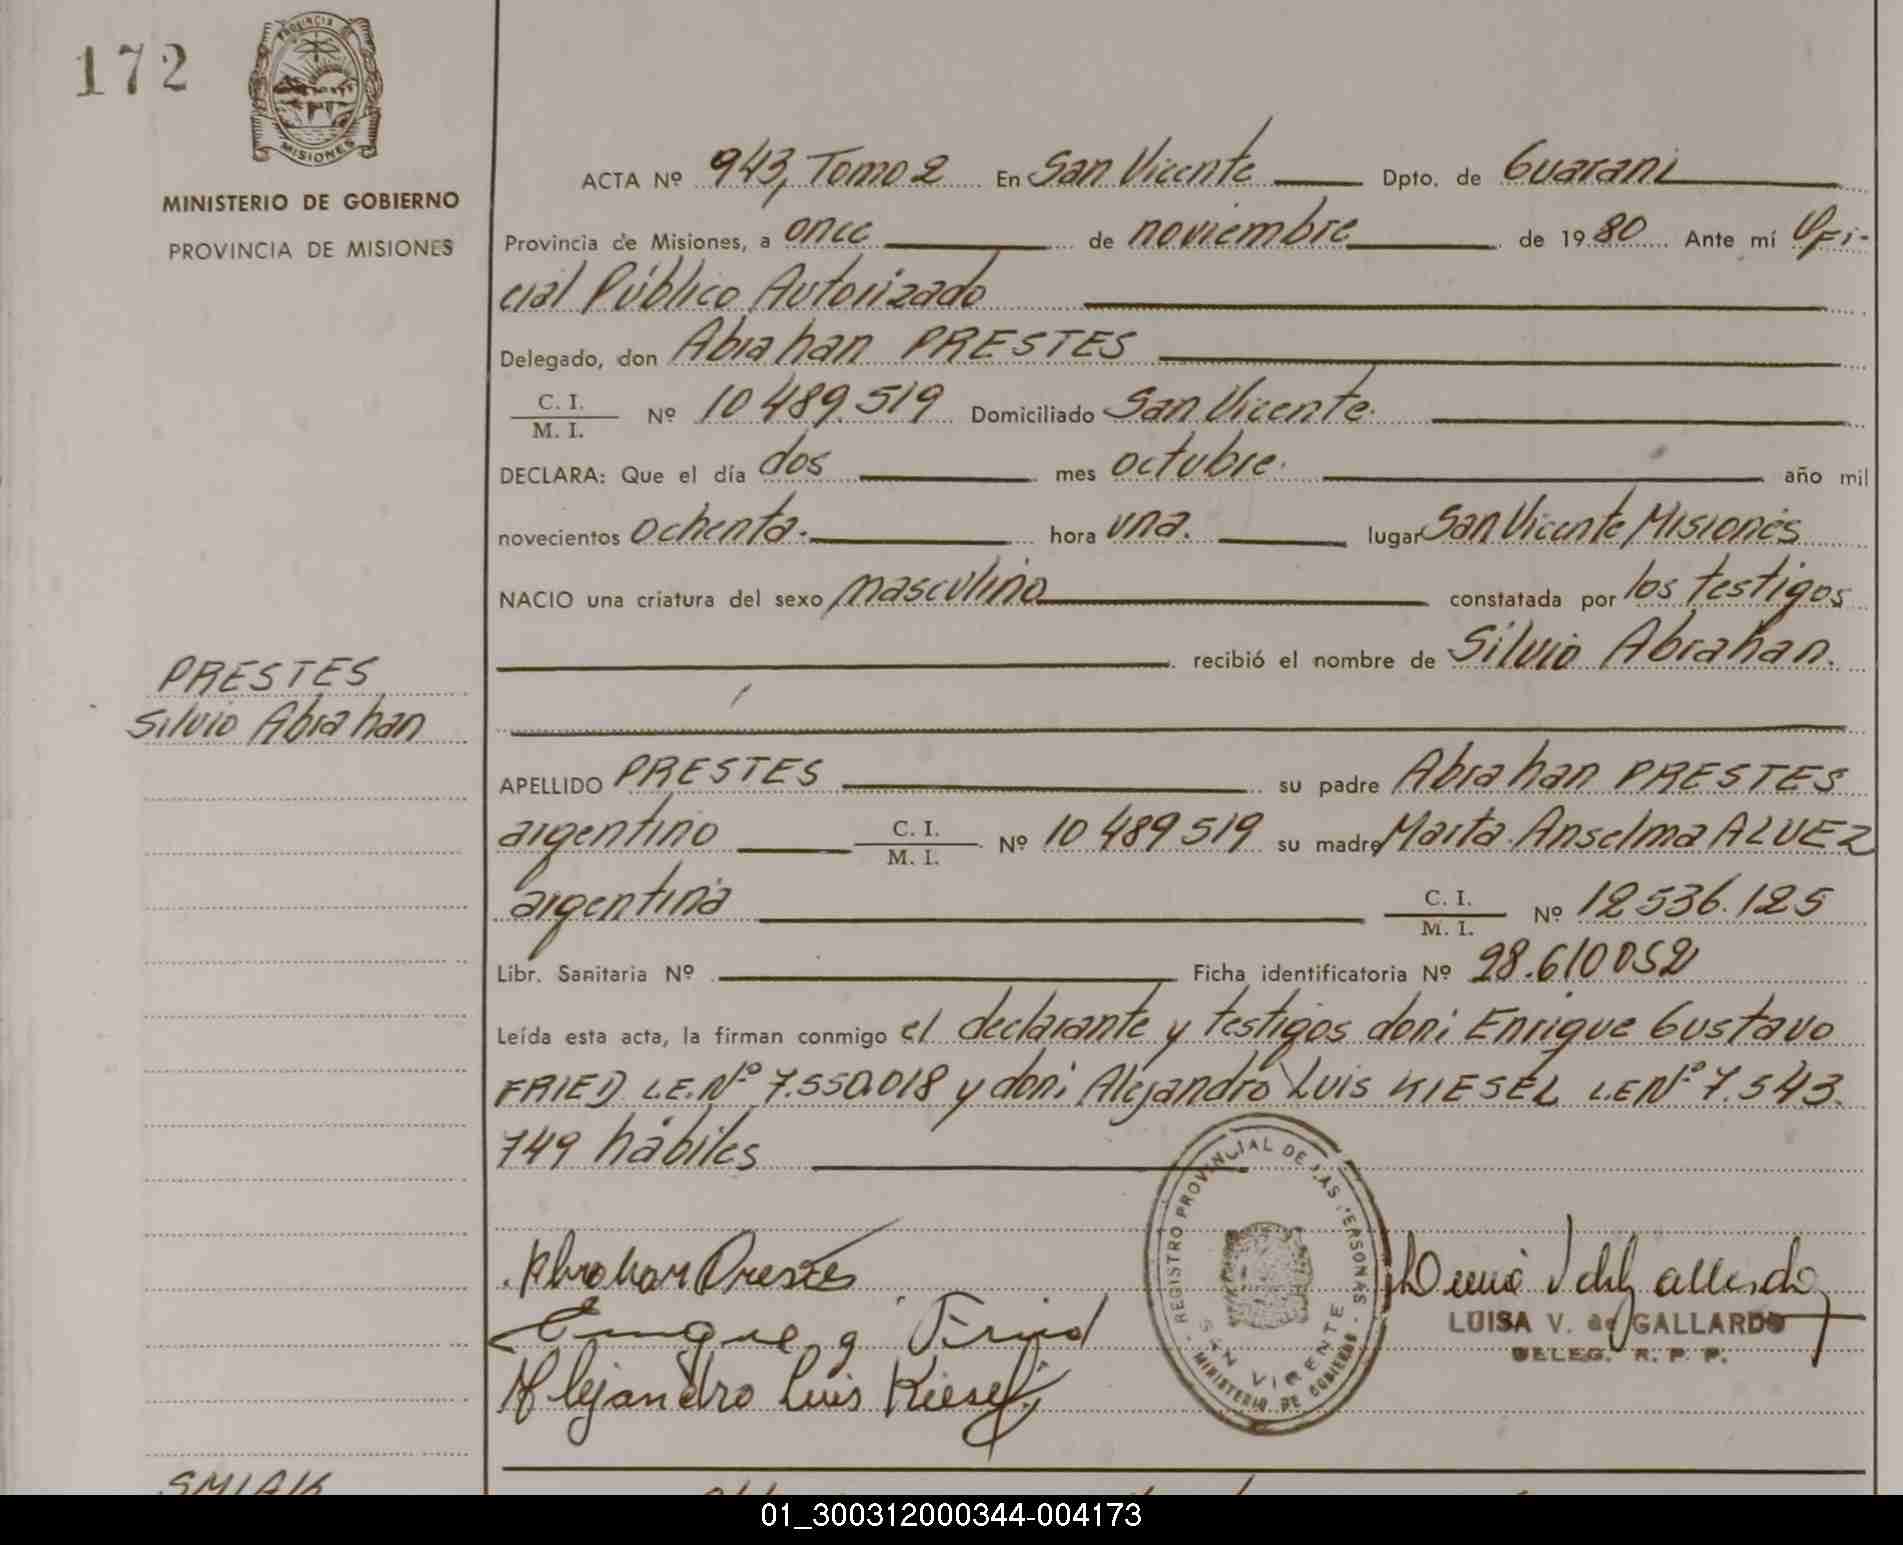 172
PROVINCIA
MISIONES
MINISTERIO DE GOBIERNO
PROVINCIA DE MISIONES
PRESTES
Silvio Abrahan
ACTA Nº 943, Tomo 2 En San Vicente Dpto. de Guarani
Provincia de Misiones, a once de noviembre de 1980 Ante mí Ofi-
cial Público Autorizado
Delegado, don Abrahan PRESTES
C. I.
M. I. Nº 10 489.519 Domiciliado San Vicente.
DECLARA: Que el día dos mes octubre. año mil
novecientos ochenta. hora una. lugar San Vicente Misiones
NACIO una criatura del sexo masculino constatada por los testigos
recibió el nombre de Silvio Abrahan.
APELLIDO PRESTES su padre Abrahan PRESTES
argentino C. I.
M. I. Nº 10 489519 su madre Marta Anselma ALVEZ
argentina C. I.
M. I. Nº 12536.125
Libr. Sanitaria Nº Ficha identificatoria Nº 28.610052
Leída esta acta, la firman conmigo el declarante y testigos don: Enrique Gustavo
FRIED L.E.Nº 7.550.018 y don: Alejandro Luis KIESEL L.E Nº 7.543.
749 hábiles
Abrahan Prestes
Enrique g Fried
Alejandro Luis Kiesel
REGISTRO PROVINCIAL DE LAS PERSONAS
SAN VICENTE
MINISTERIO DE GOBIERNO
LUISA V. de GALLARDO
DELEG. R. P. P.
SMIAK
01_300312000344-004173